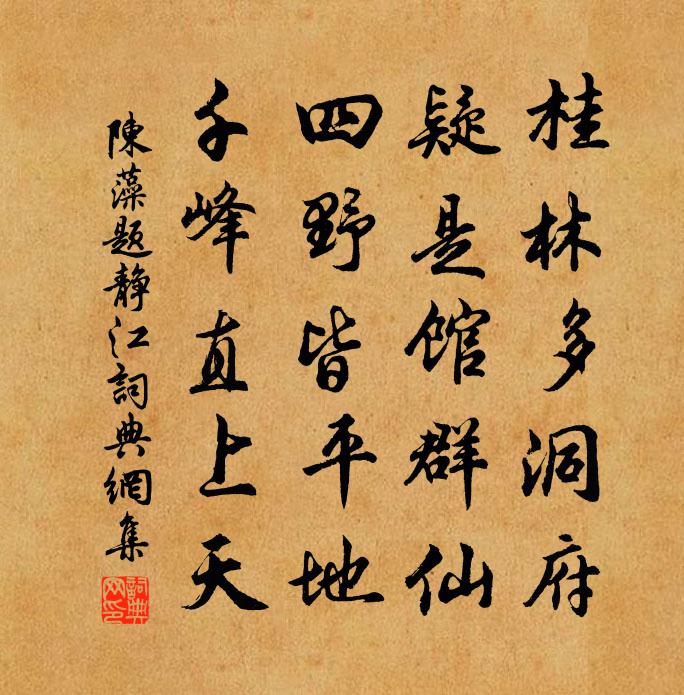 桂林多洞府
疑是馆群仙
四野皆平地
千峰直上天
陳藻题静江詞典網集
詞典网印